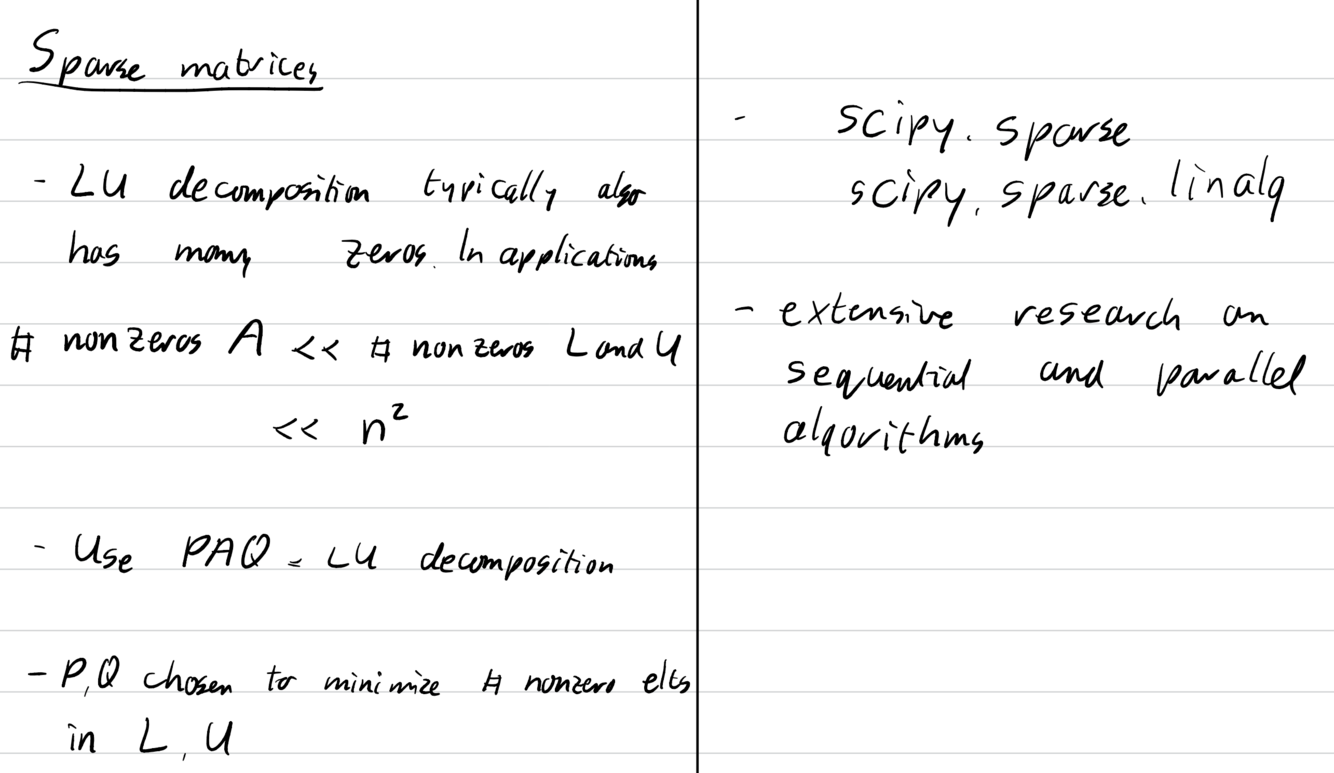 Sparse matrices
- LU decomposition typically also
has many zeros. In applications
# nonzeros A << # nonzeros L and U
<< n²
- Use PAQ = LU decomposition
- P, Q chosen to minimize # nonzero elts
in L, U
- scipy. sparse
scipy. sparse. linalg
- extensive research on
sequential and parallel
algorithms